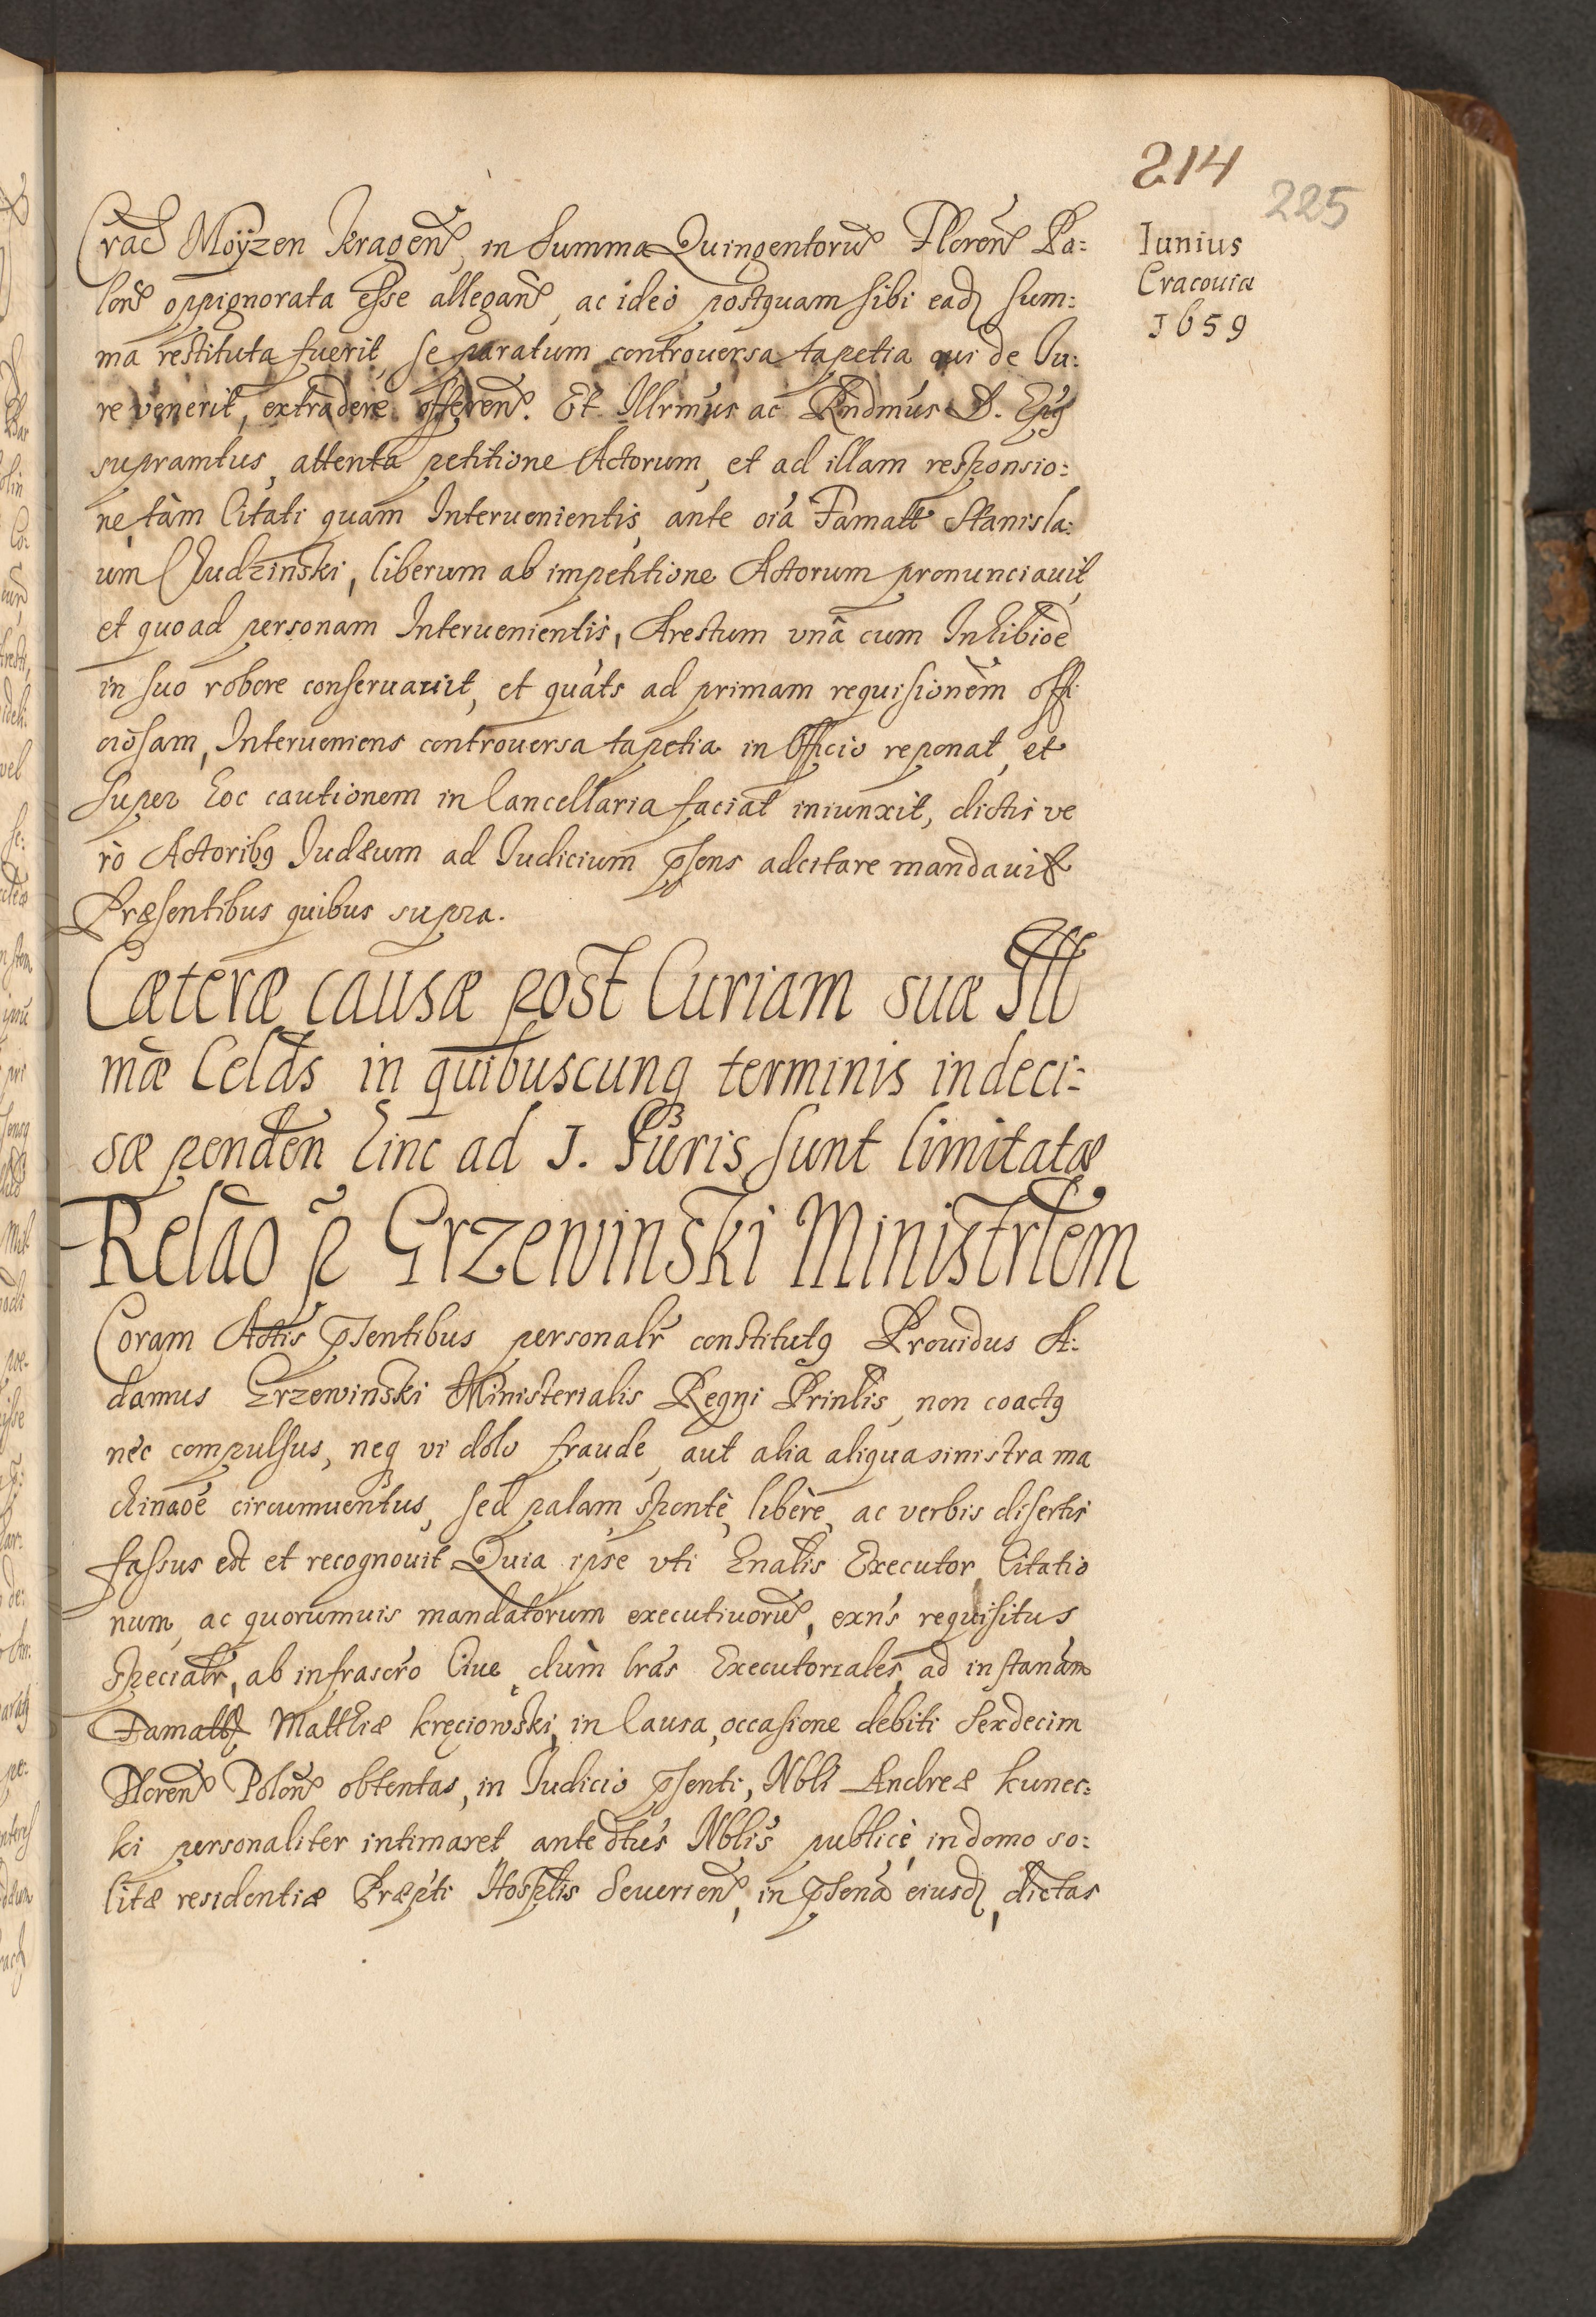 214
225
Iunius
Cracouia
1659
Crac̄ Moÿzen Kragen̄, in Summa Quingentorū Floren̄ Po:
lon̄ oppignorata esse allegan̄, ac ideò postquam sibi ead sum:
ma restituta fuerit, se paratum controuersa tapetia cui de Iu:
re venerit, extradere offeren̄. Et Illrmus ac Rndmus D. Epus
supramtus, attenta petitione Actorum, et ad illam responsio:
ne, tàm Citati quam Interuenientis, ante oīa Famatt Stanisla:
um Chudzinski, liberum ab impetitione Actorum pronunciauit,
et quoad personam Interuenientis, Arestum vnâ cum Inhibiōe
in suo robore conseruauit, et quats ad primam requisionem offi
ciosam, Interueniens controuersa tapetia in Officio reponat, et
super hoc cautionem in Cancellaria faciat iniunxit, dictis ve
rò Actoribq Iudæum ad Iudicium psens adcitare mandauit
Præsentibus quibus supra.
Cæteræ causæ post Curiam suæ Ill
mæ Celds in quibuscunq terminis indeci:
sæ penden hinc ad J. Iuris sunt limitatæ
Relāo p̄ Grzewinski Ministrlem
Coram Actis psentibus personalr constitutq Prouidus A:
damus Grzewinski Ministerialis Regni Prinlis, non coactq
nec compulsus, neq vi dolo fraude, aut alia aliqua sinistra ma
chinaōe circumuentus, sed palam, spontè, liberè, ac verbis disertis
fassus est et recognouit Quia ipse vti Gnalis Executor Citatio
num, ac quorumuis mandatorum executiuorū, exn̄s requisitus
specialr, ab infrascro Ciue, dum lras Executoriales, ad instanām
Famattͬ Matthiæ Kręciowski, in Causa, occasione debiti Sexdecim
Floren̄ Polon̄ obtentas, in Iudicio psenti, Nbli Andreæ Kunec:
ki personaliter intimaret antedtus Nblis publicè, in domo so:
litæ residentiæ Præpti Hosplis Seuerien̄, in psenā eiusd, dictas